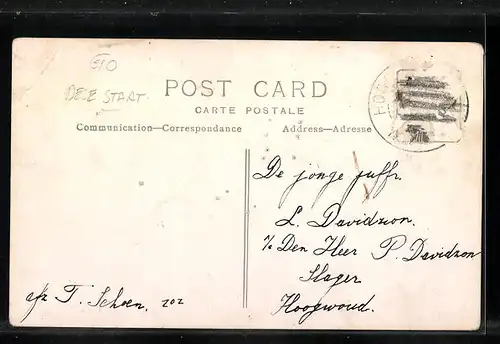 510
DEZE START.
POST CARD
CARTE POSTALE
Communication—Correspondance
Address—Adresse
De jonge juffr.
L. Davidzon.
% Den Heer P. Davidzon
Slager
Hoogwoud.
afz T. Schoen. 202